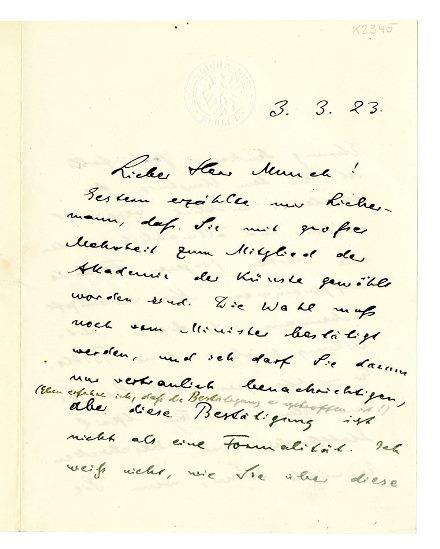 K2345
3. 3. 23.
Lieber Herr Munch!
Gestern erzählte mir Lieber-
mann, daß Sie mit großer
Mehrheit zum Mitglied der
Akademie der Künste gewählt
worden sind. Die Wahl muß
noch vom Minister bestätigt
werden, und ich darf Sie darum
nur vertraulich benachrichtigen,
(Eben erfahre ich, daß die Bestätigung eingetroffen ist!)
aber diese Bestätigung ist
nichts als eine Formalität. Ich
weiß nicht, wie Sie über diese